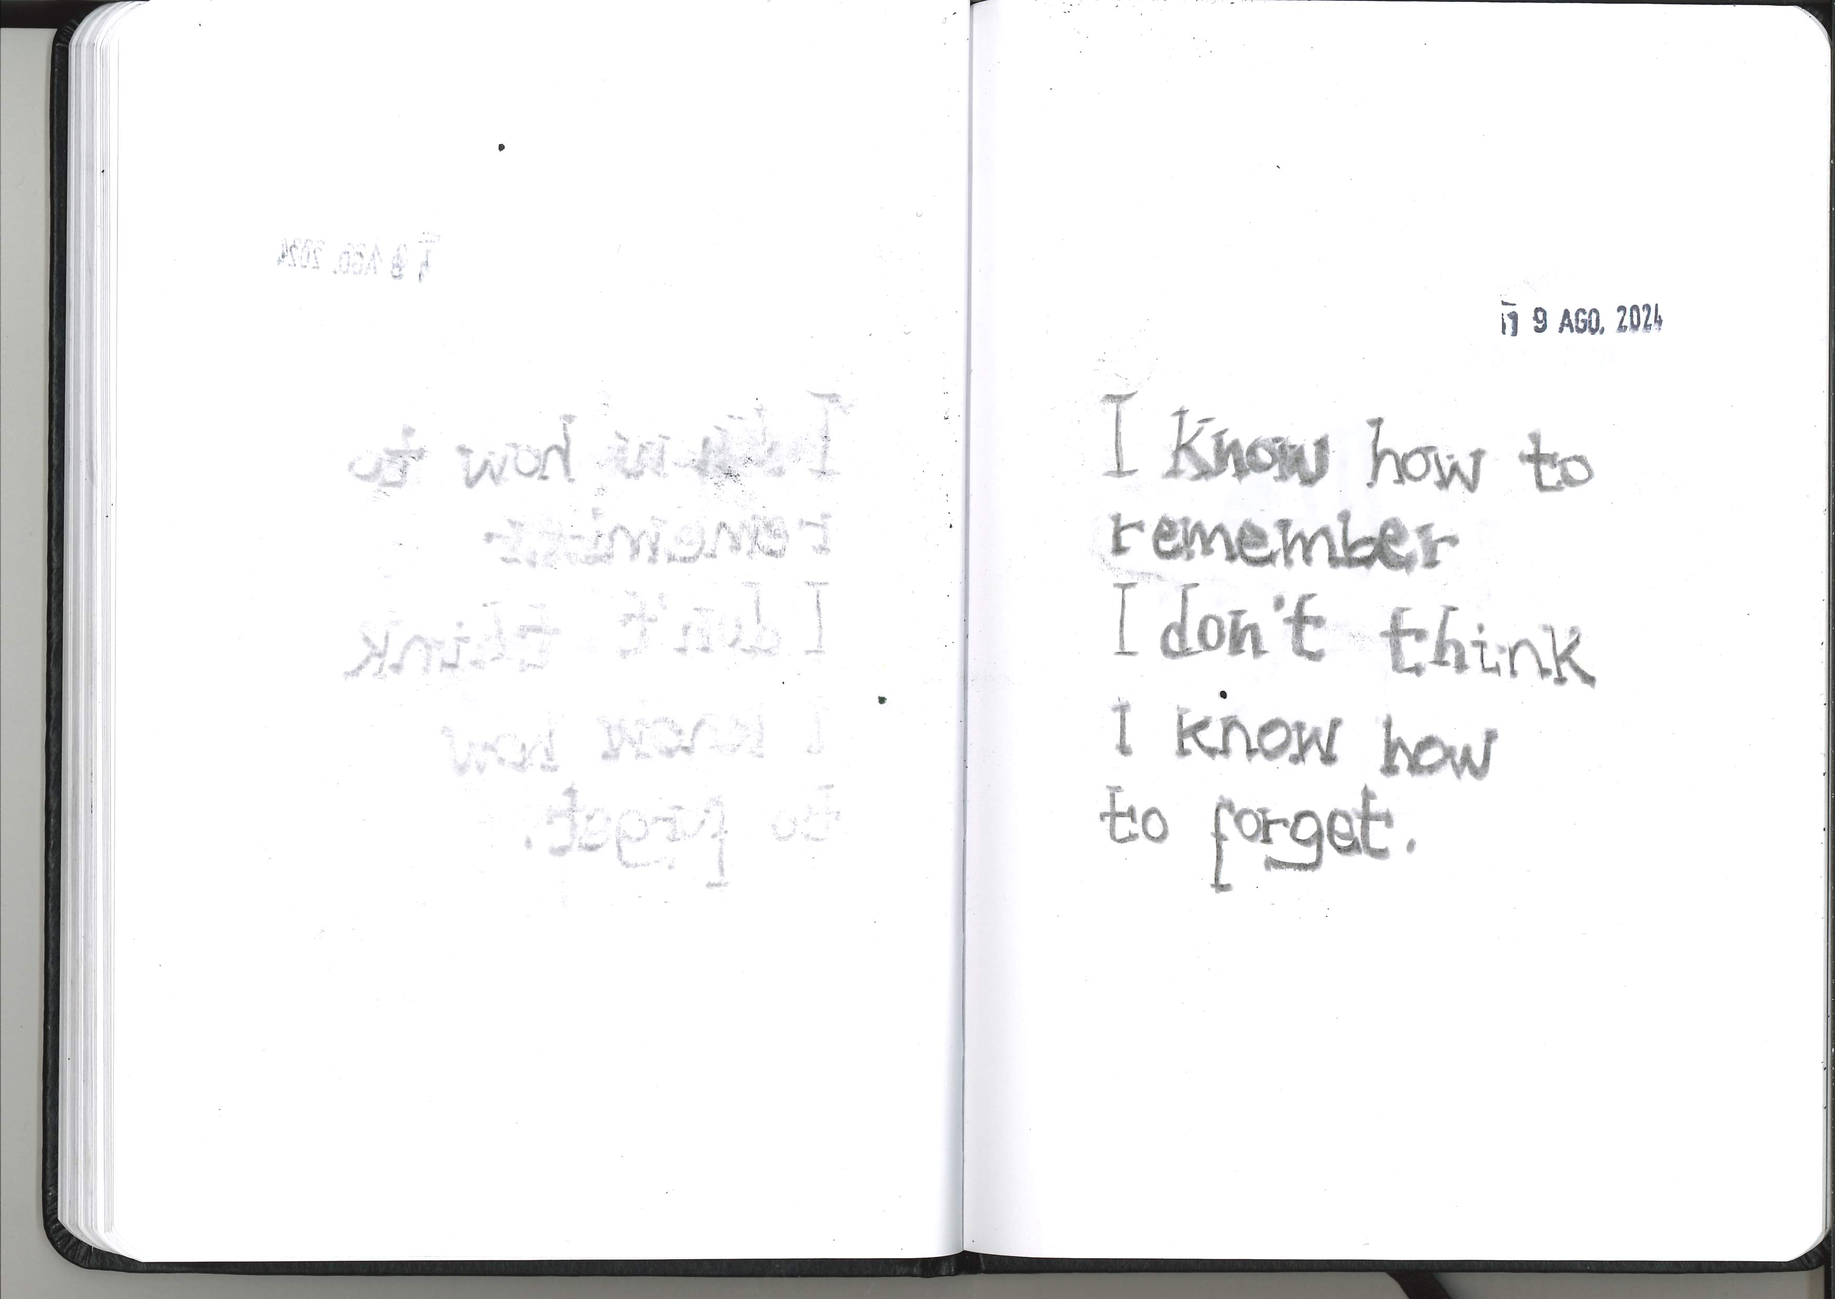 9 AGO. 2024
I know how to
remember
I don't think
I know how
to forget.